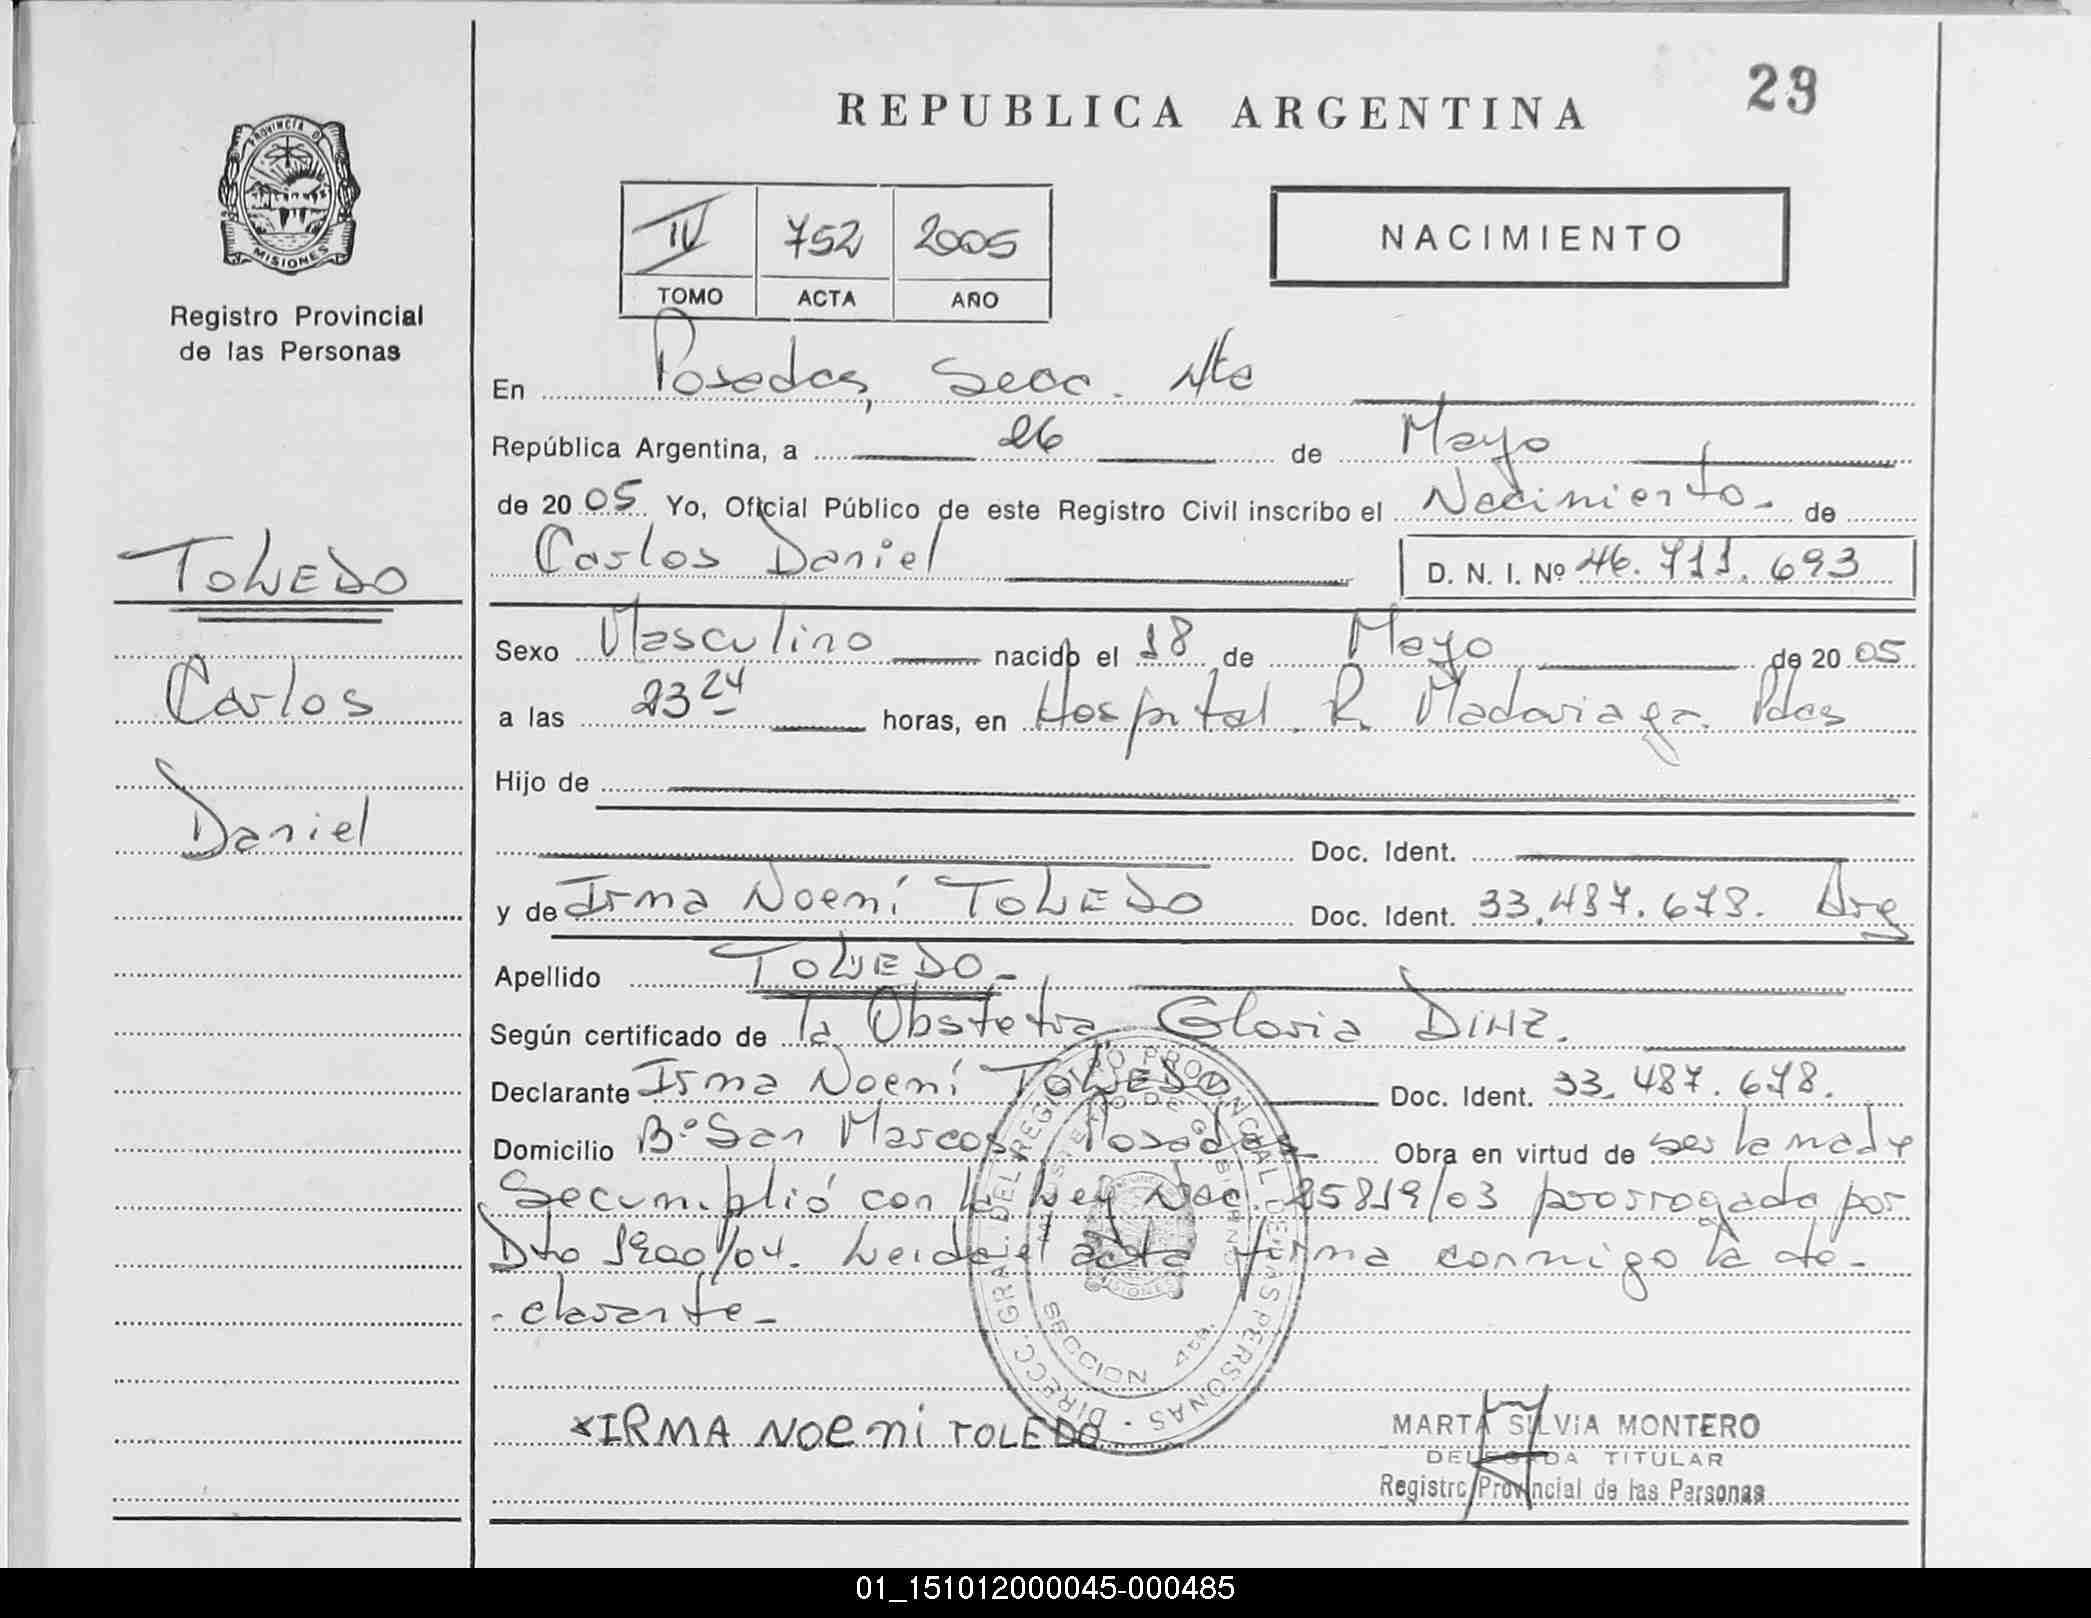 29
REPUBLICA ARGENTINA
PROVINCIA DE
MISIONES
Registro Provincial
de las Personas
IV 752 2005
TOMO ACTA AÑO
NACIMIENTO
En Posadas, Secc. 4ta
República Argentina, a 26 de Mayo
de 2005 Yo, Oficial Público de este Registro Civil inscribo el Nacimiento - de
Carlos Daniel D. N. I. Nº 46.711.693
TOLEDO
Carlos
Daniel
Sexo Masculino nacido el 18 de Mayo de 2005
a las 23 24 horas, en Hospital R. Madariaga. Pdas
Hijo de
Doc. Ident.
y de Irma Noemí TOLEDO Doc. Ident. 33.487.678. Arg
Apellido TOLEDO -
Según certificado de la Obstetra Gloria DINZ.
Declarante Irma Noemí TOLEDO Doc. Ident. 33.487.678.
Domicilio Bº San Marcos Posadas Obra en virtud de ser la madre
Se cumplió con la Ley Nac. 25819/03 prorrogada por
Dto 1900/04. Leida el acta firma conmigo la de-
-clarante -
DIRECC. GRAL. DEL REGISTRO PROVINCIAL DE LAS PERSONAS
MINISTERIO DE GOBIERNO
MISIONES
SECCION 4ta.
x IRMA NOEMI TOLEDO
MARTA SILVIA MONTERO
DELEGADA TITULAR
Registro Provincial de las Personas
01_151012000045-000485